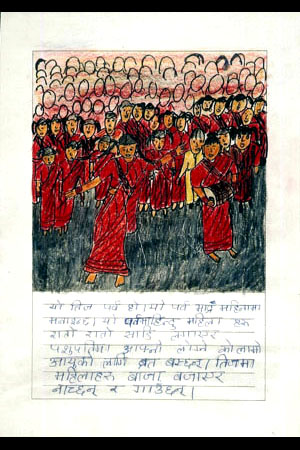 यो तिज पर्व हो। यो पर्व भाद्र महिनामा
मनाइन्छ। यो पर्वमा हिन्दु महिला हरु
रातो रातो साडि लगाएर
पशुपतिमा आफ्नो लोग्ने को लामो
आयुको लागि व्रत बस्छन्। तिजमा
महिलाहरु बाजा बजाएर
नाच्छन् र गाउछन्।